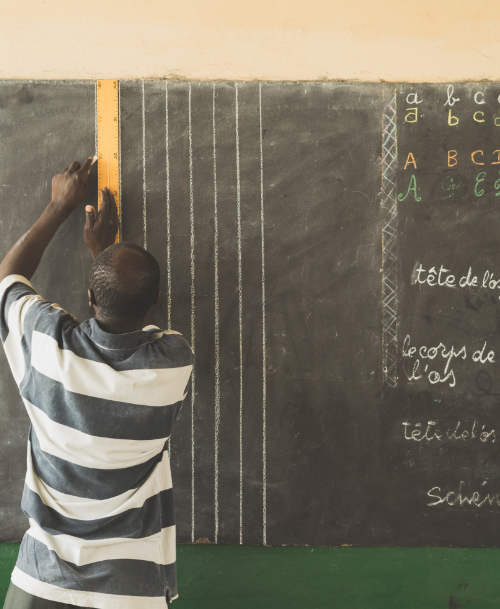 a b c
a b c
A B C D
A
tête de l'os
le corps de
l'os
tête de l'os
Schém